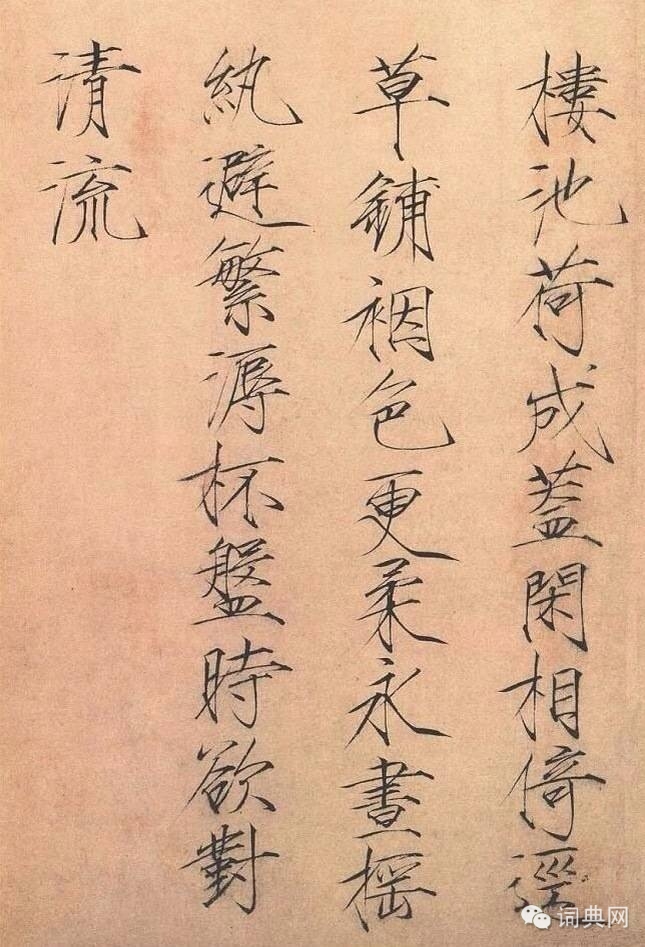 樓池荷成蓋閑相倚逕
草鋪裀色更柔永晝搖
紈避繁溽杯盤時欲對
清流
词典网